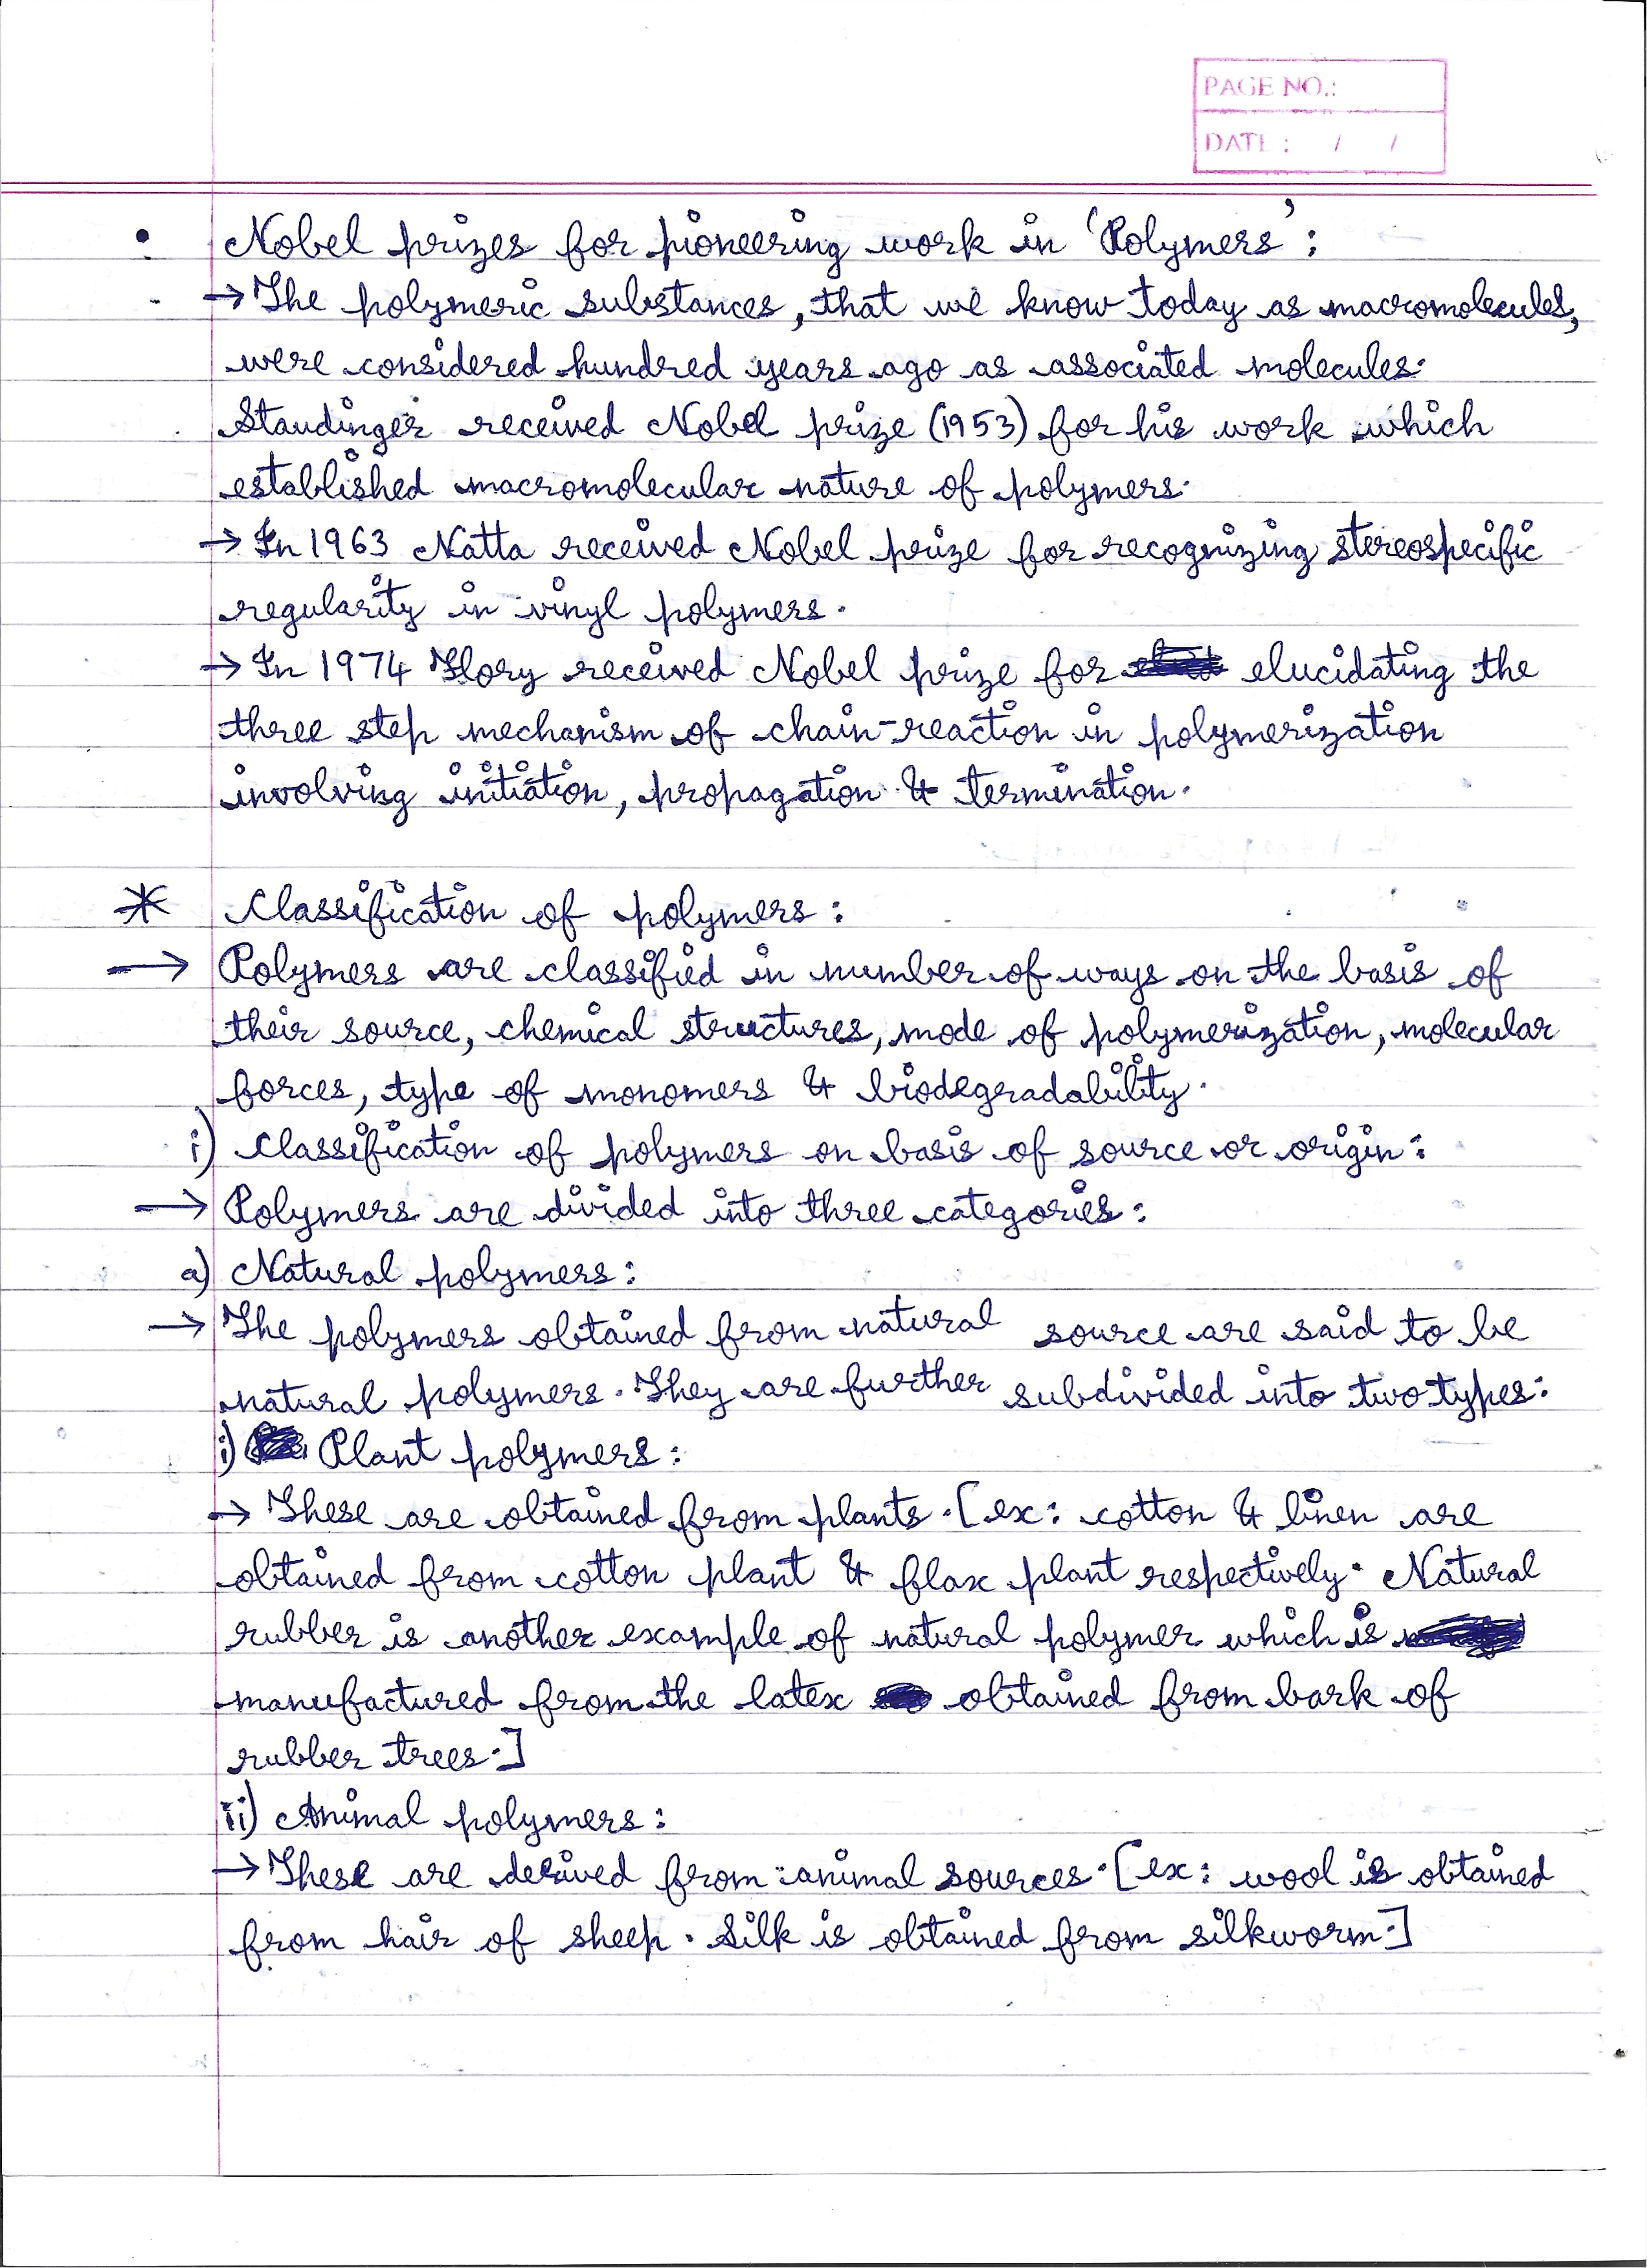 PAGE NO.:
DATE : / /
• Nobel prizes for pioneering work in 'Polymers' :
→ The polymeric substances, that we know today as macromolecules,
were considered hundred years ago as associated molecules.
Staudinger received Nobel prize (1953) for his work which
established macromolecular nature of polymers.
→ In 1963 Natta received Nobel prize for recognizing stereospecific
regularity in vinyl polymers.
→ In 1974 Flory received Nobel prize for elucidating the
three step mechanism of chain-reaction in polymerization
involving initiation, propagation & termination.
* Classification of polymers :
→ Polymers are classified in number of ways on the basis of
their source, chemical structures, mode of polymerization, molecular
forces, type of monomers & biodegradability.
i) Classification of polymers on basis of source or origin :
→ Polymers are divided into three categories :
a) Natural polymers :
→ The polymers obtained from natural source are said to be
natural polymers. They are further subdivided into two types :
i) Plant polymers :
→ These are obtained from plants. [ex : cotton & linen are
obtained from cotton plant & flax plant respectively. Natural
rubber is another example of natural polymer which is
manufactured from the latex obtained from bark of
rubber trees.]
ii) Animal polymers :
→ These are derived from animal sources. [ex : wool is obtained
from hair of sheep. Silk is obtained from silkworm.]